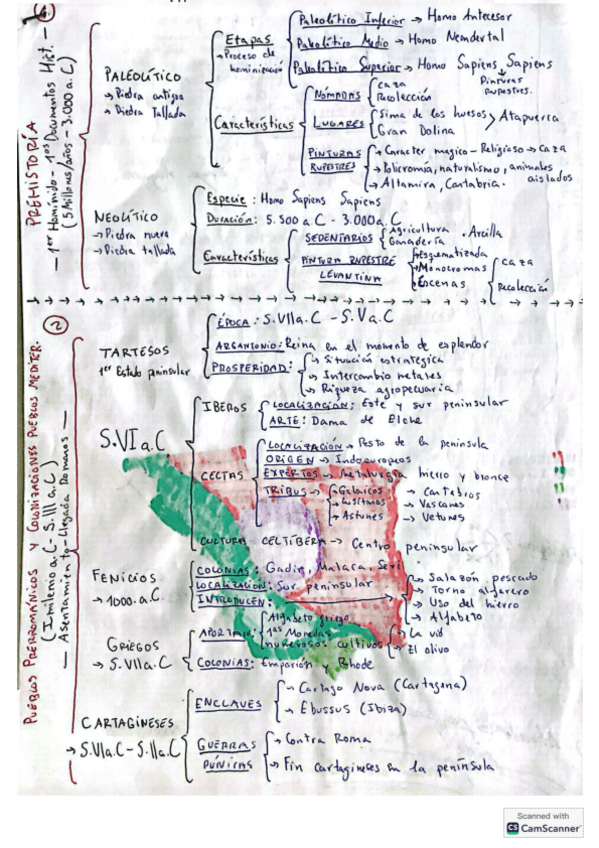 1
PREHISTORIA
— 1er Homínido - 1os Documentos Hist. —
(5 Millons/años - 3.000 a.C)
PALEOLÍTICO
→ Piedra antigua
→ Piedra Tallada
Etapas
→ Proceso de hominización
Paleolítico Inferior → Homo Antecesor
Paleolítico Medio → Homo Neandertal
Paleolítico Superior → Homo Sapiens Sapiens
Pinturas rupestres.
Características
NÓMADAS
caza
Recolección
LUGARES
Sima de los huesos
Gran Dolina
Atapuerca
PINTURAS RUPESTRES
→ Caracter magico - Religioso → caza
→ Policromía, naturalismo, animales aislados
→ Altamira, Cantabria.
NEOLÍTICO
→ Piedra nueva
→ Piedra tallada
Especie: Homo Sapiens Sapiens
Duración: 5.500 a C - 3.000 a. C
Características
SEDENTARIOS
Agricultura
Ganadería
. Arcilla
PINTURA RUPESTRE LEVANTINA
Esquematizada
Monocromas
Escenas
caza
Recolección
2
PUEBLOS PRERROMÁNICOS Y COLONIZACIONES PUEBLOS MEDITER.
(I milenio a.C - S.III a.C)
— Asentamiento - Llegada Romanos —
TARTESOS
1er Estado peninsular
ÉPOCA: S.VII a.C - S.V a.C
ARGANTONIO: Reina en el momento de esplendor
PROSPERIDAD:
→ Situación estrategica
→ Intercambio metales
→ Riqueza agropecuaria
S.VI a.C
IBEROS
LOCALIZACIÓN: Este y sur peninsular
ARTE: Dama de Elche
CELTAS
LOCALIZACIÓN → Resto de la península
ORIGEN → Indoeuropeos
EXPERTOS → Metalurgia hierro y bronce
TRIBUS →
→ Galaicos
→ Lusitanos
→ Astures
→ Cantabros
→ Vascones
→ Vetones
CULTURA CELTÍBERA → Centro peninsular
FENICIOS
→ 1000. a.C
COLONIAS: Gadir, Malaca, Sexi
LOCALIZACIÓN: Sur peninsular
INTRODUCEN:
→ Salazón pescado
→ Torno alfarero
→ Uso del hierro
→ Alfabeto
GRIEGOS
→ S.VII a.C
APORTAN:
Alfabeto griego
1as Monedas
numerosos cultivos
→ La vid
→ El olivo
COLONIAS: Emporion y Rhode
CARTAGINESES
→ S.VI a.C - S.II a.C
ENCLAVES
→ Cartago Nova (Cartagena)
→ Ebussus (Ibiza)
GUERRAS PÚNICAS
→ Contra Roma
→ Fin cartagineses en la península
Scanned with
CS CamScanner